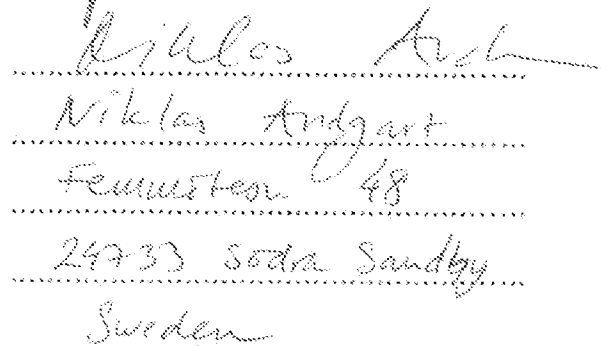 Niklas And
Niklas Andgart
Femmöresv 48
24733 Södra Sandby
Sweden